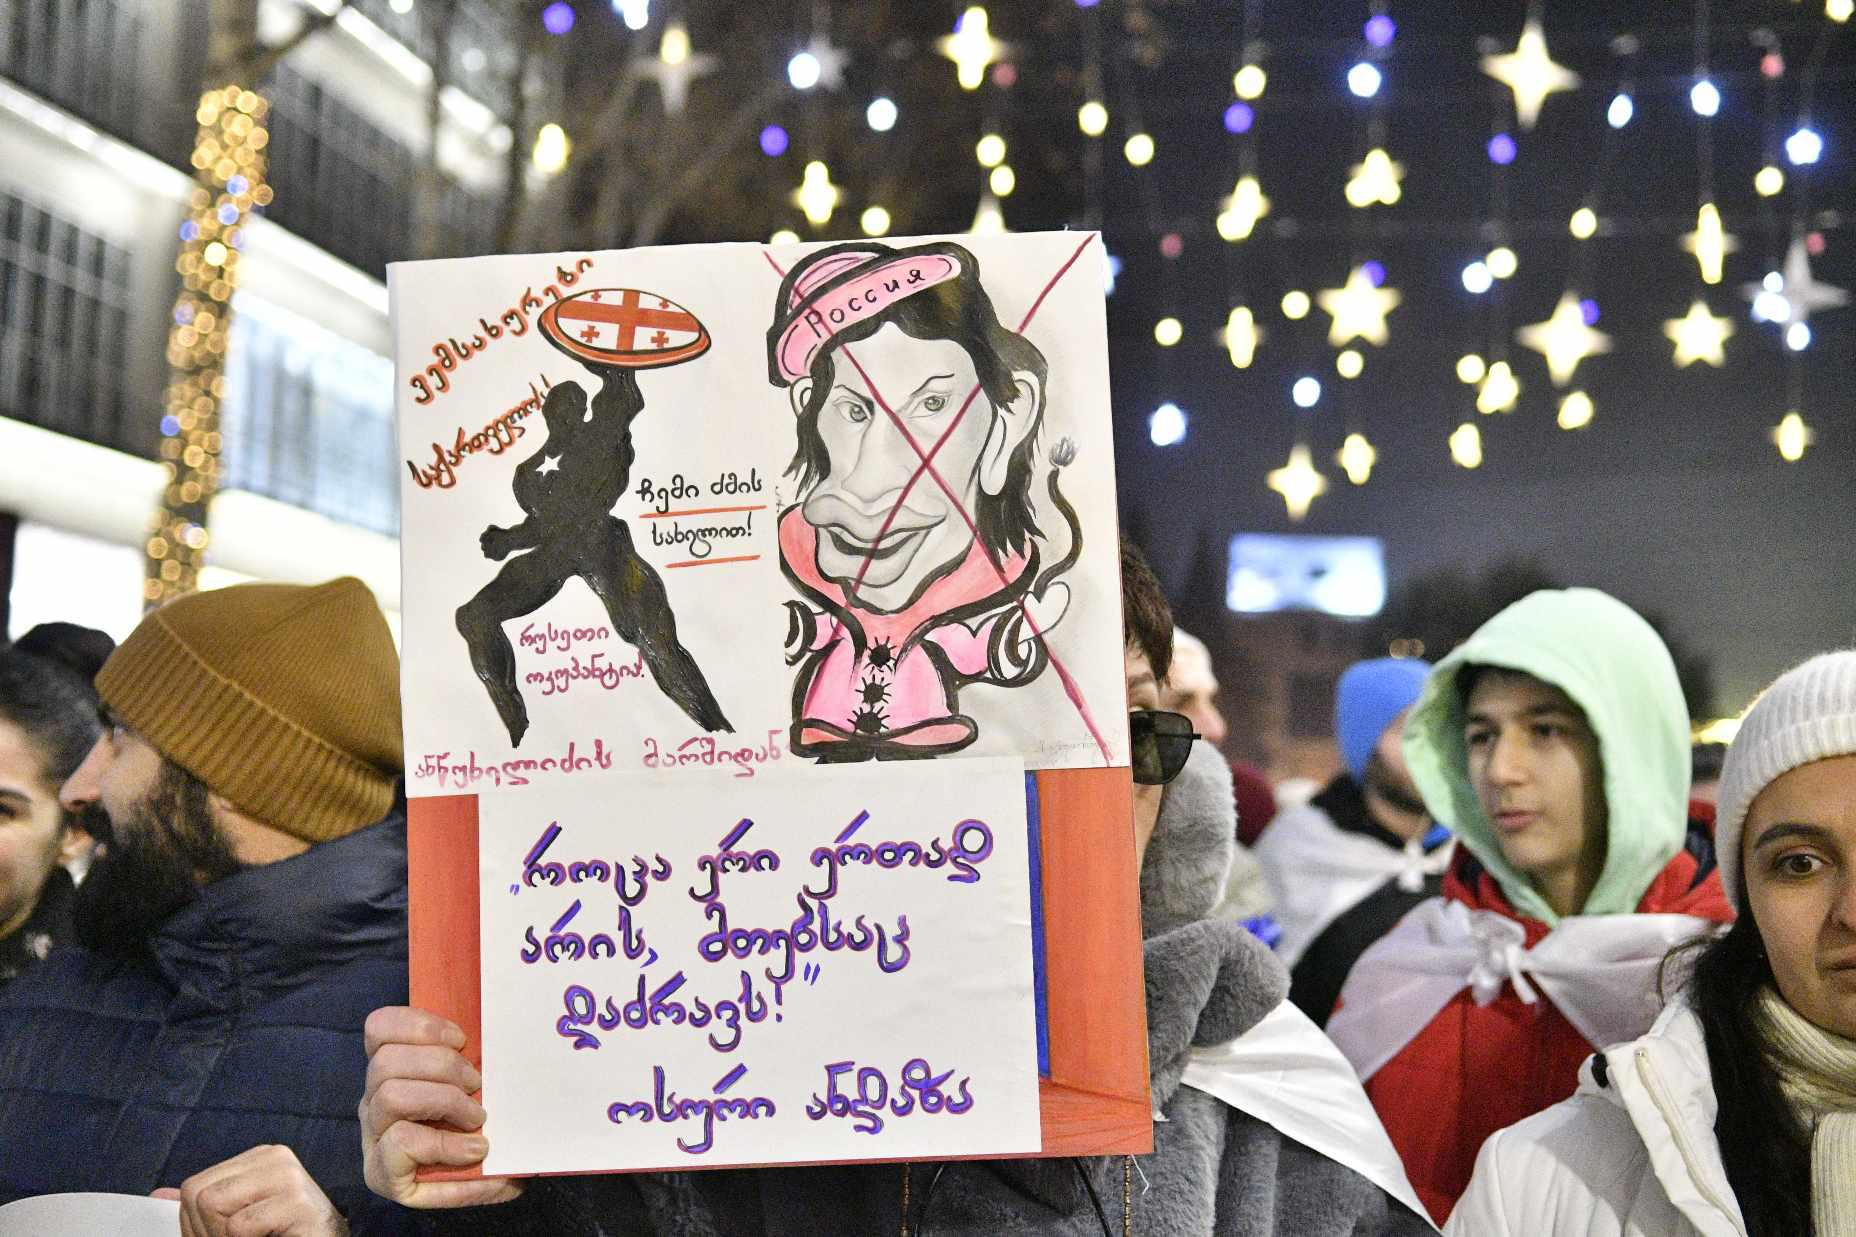 ვემსახურები
საქართველოს!
Россия
ჩემი ძმის
სახელით!
რუსეთი
ოკუპანტია!
ანწუხელიძის მარშიდან
„როცა ერი ერთად
არის, მთებსაც
დაძრავს!"
ოსური ანდაზა